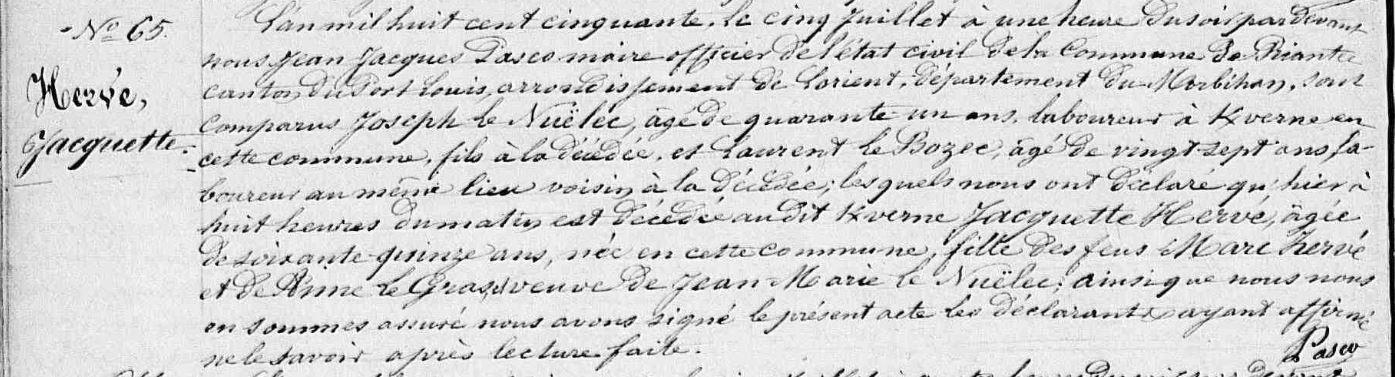 Nº 65.
Hervé,
Jacquette.
L'an mil huit cent cinquante, le cinq Juillet à une heure du soir par devant
nous Jean Jacques Pasco maire officier de l'état civil de la Commune de Riantec
canton du Port Louis, arrondissement de Lorient, département du Morbihan, sont
comparus Joseph le Nuëlec, âgé de quarante un ans, laboureur à Kverne en
cette commune, fils à la décédée, et Laurent le Bozec, âgé de vingt sept ans la-
boureur au même lieu voisin à la décédée; lesquels nous ont déclaré qu'hier à
huit heures du matin est décédée au dit Kverne Jacquette Hervé, âgée
de soixante quinze ans, née en cette commune, fille des feus Marc Hervé
et de Anne le Gras, veuve de Jean Marie le Nuëlec; ainsi que nous nous
en sommes assuré nous avons signé le présent acte les déclarants ayant affirmé
ne le savoir après lecture faite.
Pasco